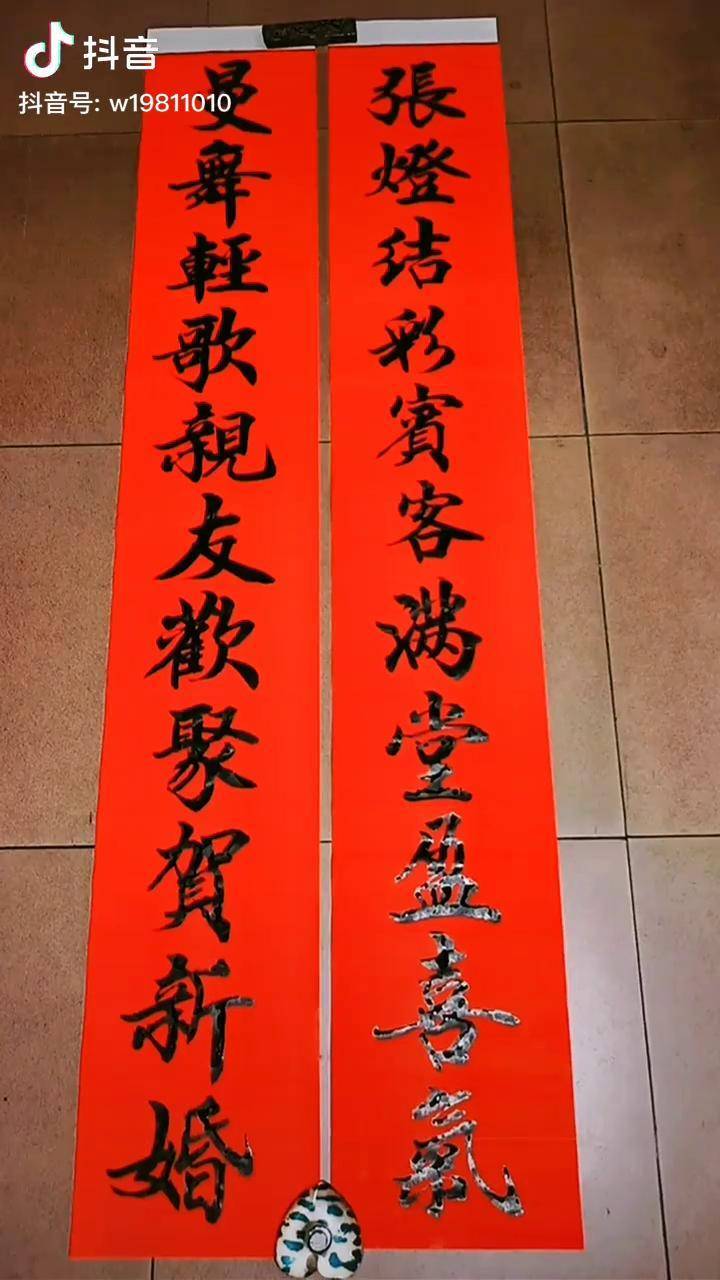 抖音
抖音号: w19811010
張燈结彩賓客满堂盈喜氣
曼舞輕歌親友歡聚賀新婚